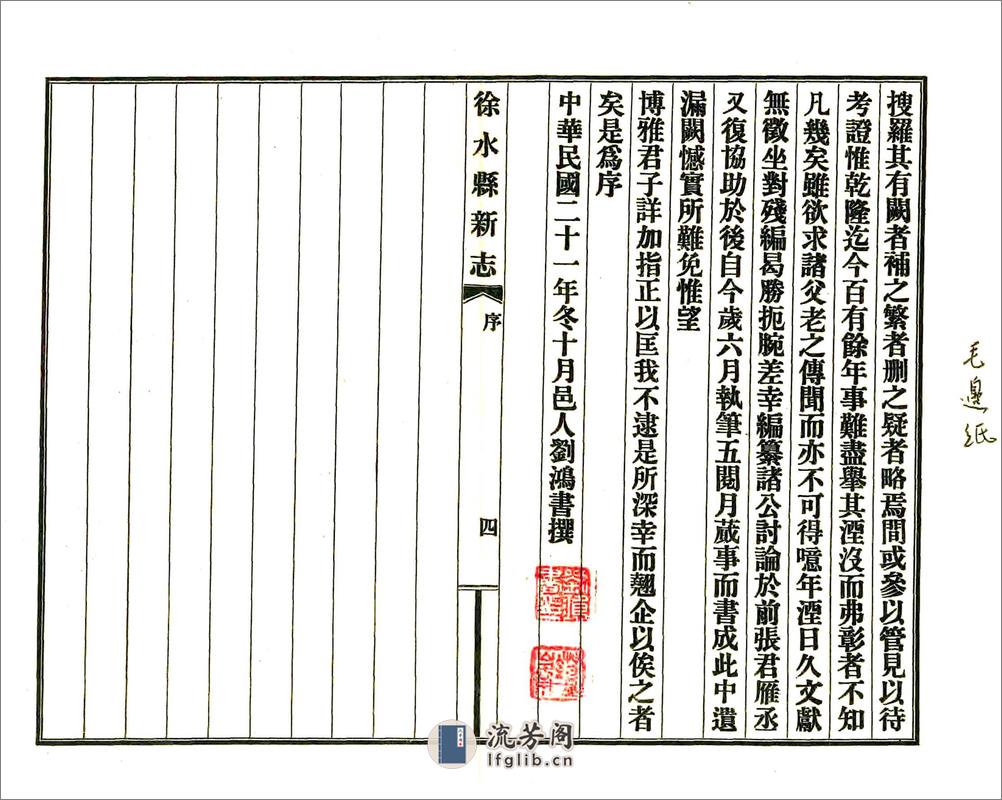 搜羅其有闕者補之繁者删之疑者略焉間或參以管見以待
考證惟乾隆迄今百有餘年事難盡舉其湮沒而弗彰者不知
凡幾矣雖欲求諸父老之傳聞而亦不可得噫年湮日久文獻
無徵坐對殘編曷勝扼腕差幸編纂諸公討論於前張君雁丞
又復協助於後自今歲六月執筆五閱月蕆事而書成此中遺
漏闕憾實所難免惟望
博雅君子詳加指正以匡我不逮是所深幸而翹企以俟之者
矣是為序
中華民國二十一年冬十月邑人劉鴻書撰
徐水縣新志
序
四
毛邊紙
流芳阁
lfglib.cn